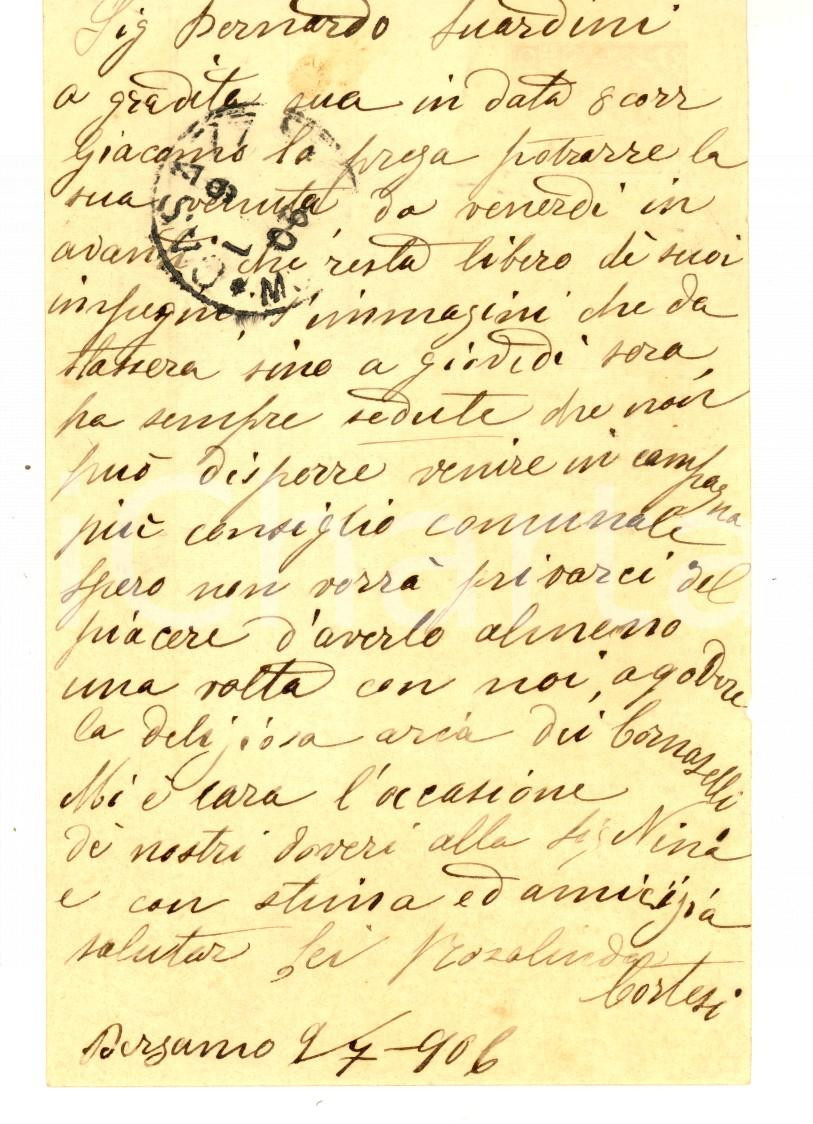 Sig Bernardo Suardini
a gradita sua in data 8 corr
Giacomo la prega potrarre la
sua venuta da venerdi in
avanti che resta libero dè suoi
impegni, s'immagini che da
stassera sino a giovedi sera
ha sempre sedute che non
può disporre venire in campagna
più consiglio comunale
spero non vorrà privarci del
piacere d'averlo almeno
una volta con noi, a godere
la deliziosa aria dei
Mi è cara l'occasione
dè nostri doveri alla Sig Nina
e con stima ed amicizia
salutar Lei Rosalinda
Cortesi
Bergamo 9/7-906